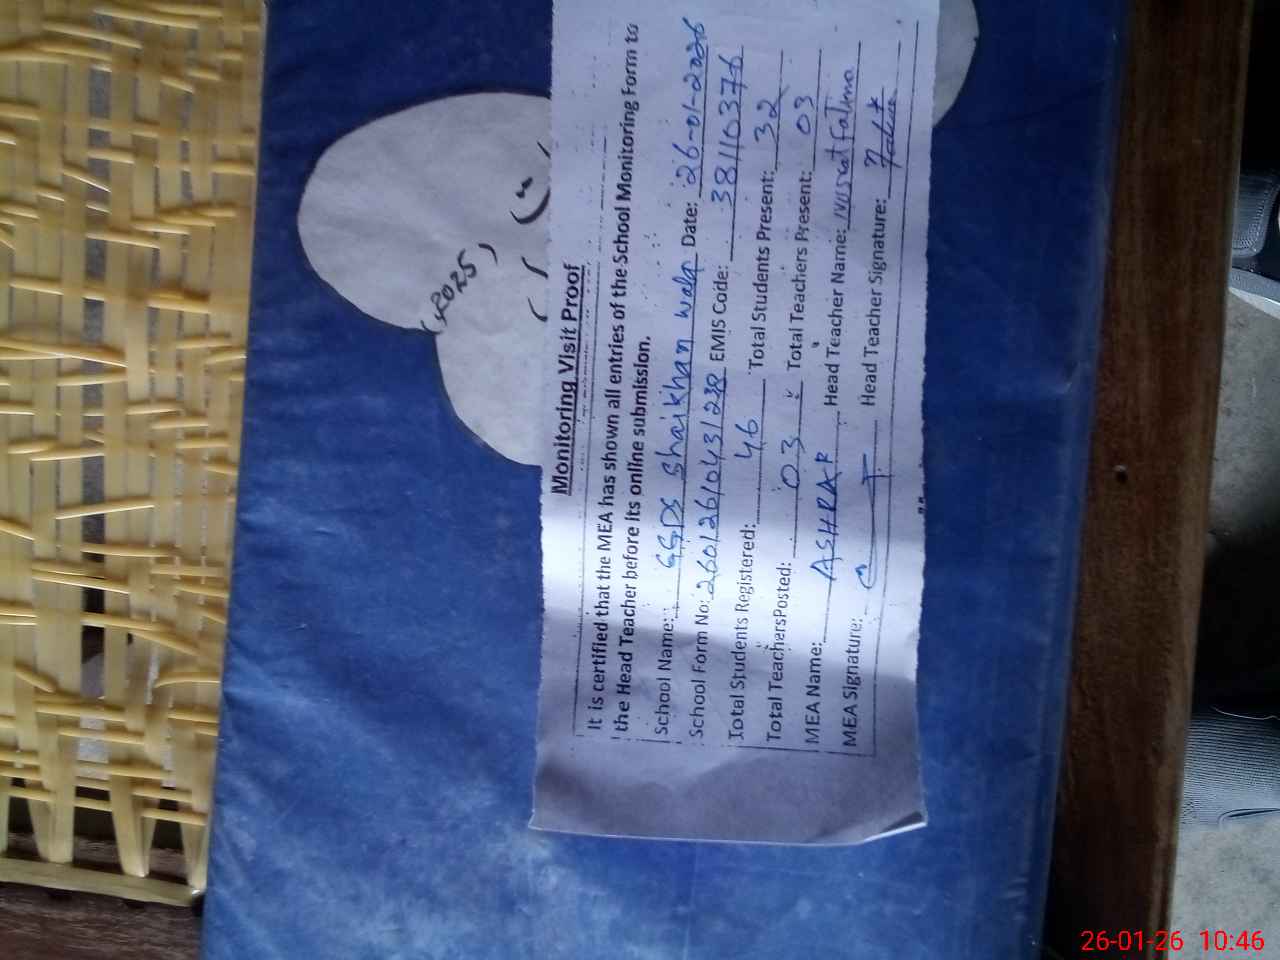 Monitoring Visit Proof
It is certified that the MEA has shown all entries of the School Monitoring Form to
the Head Teacher before its online submission.
School Name: GGPS Shaikhan wala Date: 26-01-2026
School Form No: 260126/043/238 EMIS Code: 38110376
Total Students Registered: 46 Total Students Present: 32
Total TeachersPosted: 03 Total Teachers Present: 03
MEA Name: ASHRAF Head Teacher Name: Nusrat Fatima
MEA Signature: Head Teacher Signature:
(2025)
26-01-26 10:46